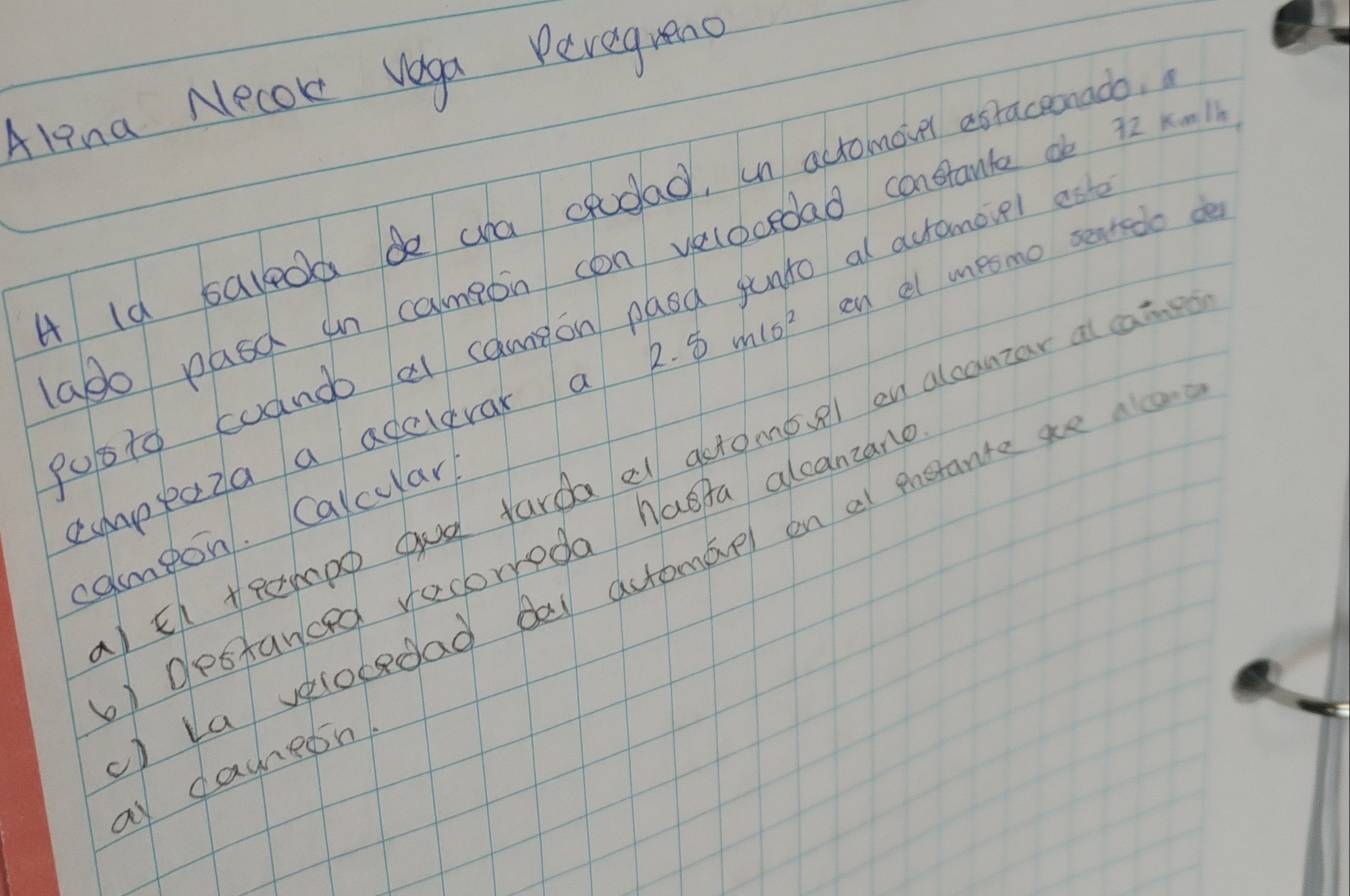 Alina Nicole Vega Peregrino
A la salida de una ciudad, un automóvil estacionado, a
lado pasa un camión con velocidad constante de 72 Km/h,
justo cuando el camión pasa junto al automóvil este
empieza a acelerar a 2.5 m/s² en el mismo sentido del
camión. Calcular:
a) El tiempo que tarda el automóvil en alcanzar al camión
b) Distancia recorrida hasta alcanzarlo.
c) La velocidad del automóvil en el instante que alcanza
al camión.